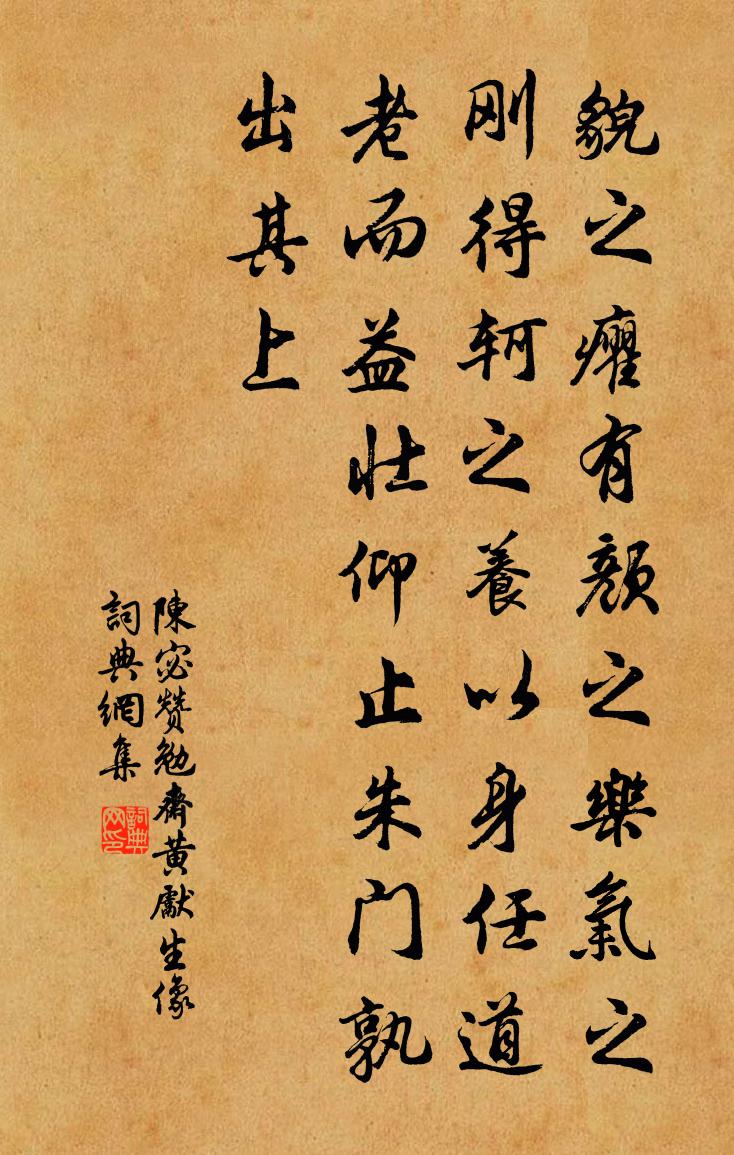 貌之癯有顏之樂氣之
刚得軻之養以身任道
老而益壯仰止朱门孰
出其上
陳宓赞勉齋黄獻生像
詞典網集
詞典网印